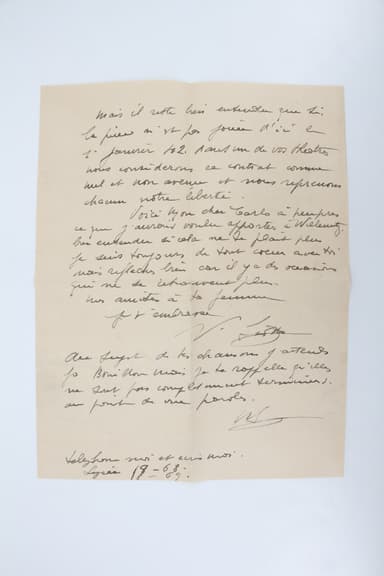 Mais il reste bien entendu que si
la pièce n'est pas jouée d'ici le
1er janvier 42 dans un de vos théâtres
nous considérons ce contrat comme
nul et non avenu et nous reprenons
chacun notre liberté.
Voici mon cher Carlo à peu près
ce que j'aurais voulu apporter à
bien entendu si cela ne te plait plus
je suis toujours de tout coeur avec toi
mais réfléchis bien car il y a des occasions
qui ne se retrouvent plus.
Mes amitiés à ta femme
je t'embrasse
V.
Au sujet de tes chansons j'attends
mais je te rappelle qu'elles
ne sont pas complètement terminées.
au point de vue paroles.
telephone moi et écris moi.
19-63